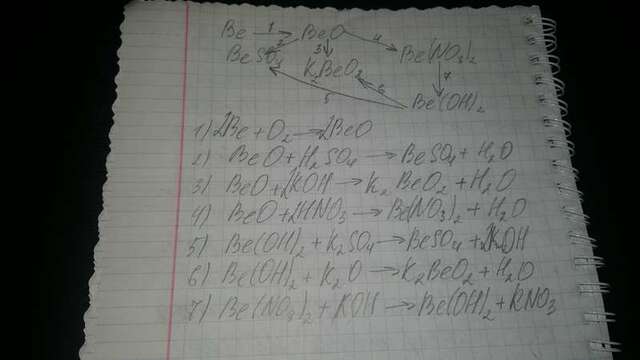 Be 1 BeO 4
BeSO4 2 3 K2BeO2 Be(NO3)2
5 6 7
Be(OH)2
1) 2Be + O2 → 2BeO
2) BeO + H2SO4 → BeSO4 + H2O
3) BeO + 2KOH → K2BeO2 + H2O
4) BeO + 2HNO3 → Be(NO3)2 + H2O
5) Be(OH)2 + K2SO4 → BeSO4 + 2KOH
6) Be(OH)2 + K2O → K2BeO2 + H2O
7) Be(NO3)2 + KOH → Be(OH)2 + KNO3